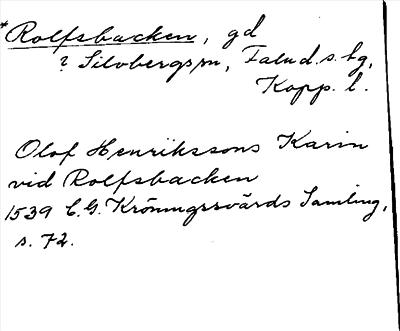 *Rolfsbacken, gd
? Silvbergs sn, Falu d.s. tg,
Kopp. l.
Olof Henrikssons Karin
vid Rolfsbacken
1539 C.G. Kröningssvärds Samling,
s. 72.